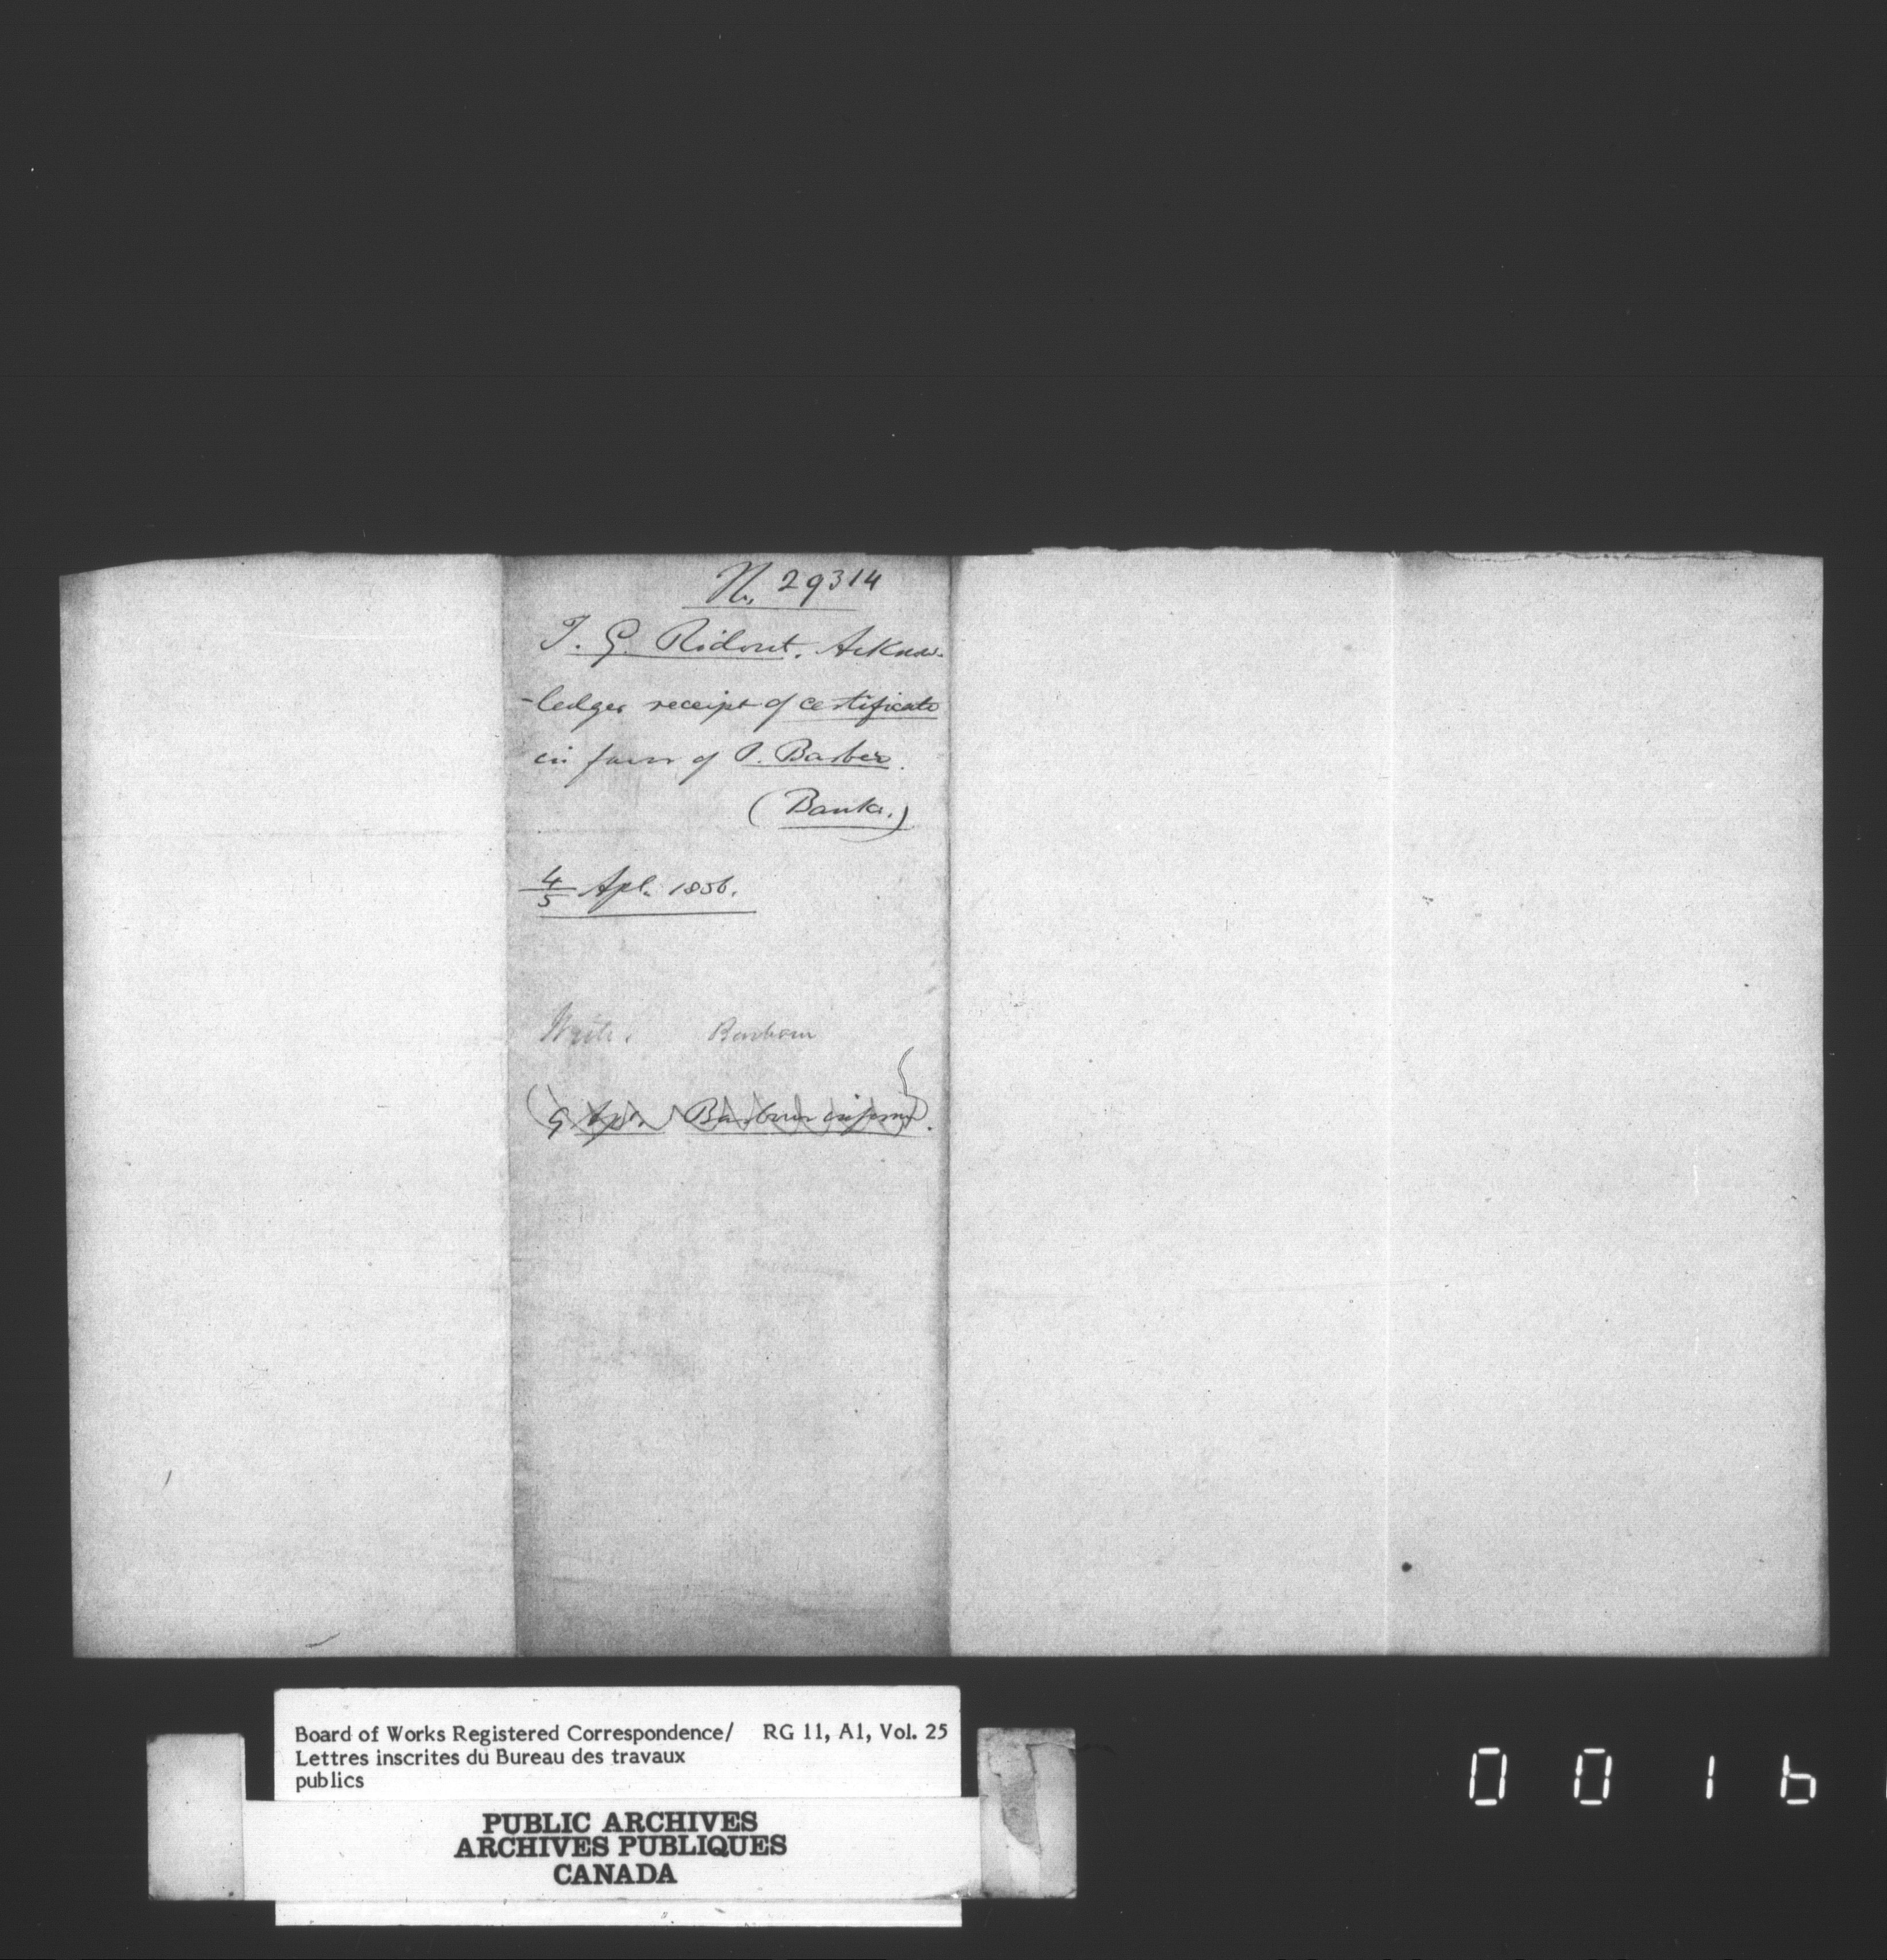 No. 29314
T. G. Ridout. Acknow-
-ledges receipt of certificate
in favor of P. Barber.
(Banks.)
4/5 Apl. 1856.
Write.
9 Apr. Barbour informd.
Board of Works Registered Correspondence/ RG 11, A1, Vol. 25
Lettres inscrites du Bureau des travaux
publics
PUBLIC ARCHIVES
ARCHIVES PUBLIQUES
CANADA
0 0 1 6